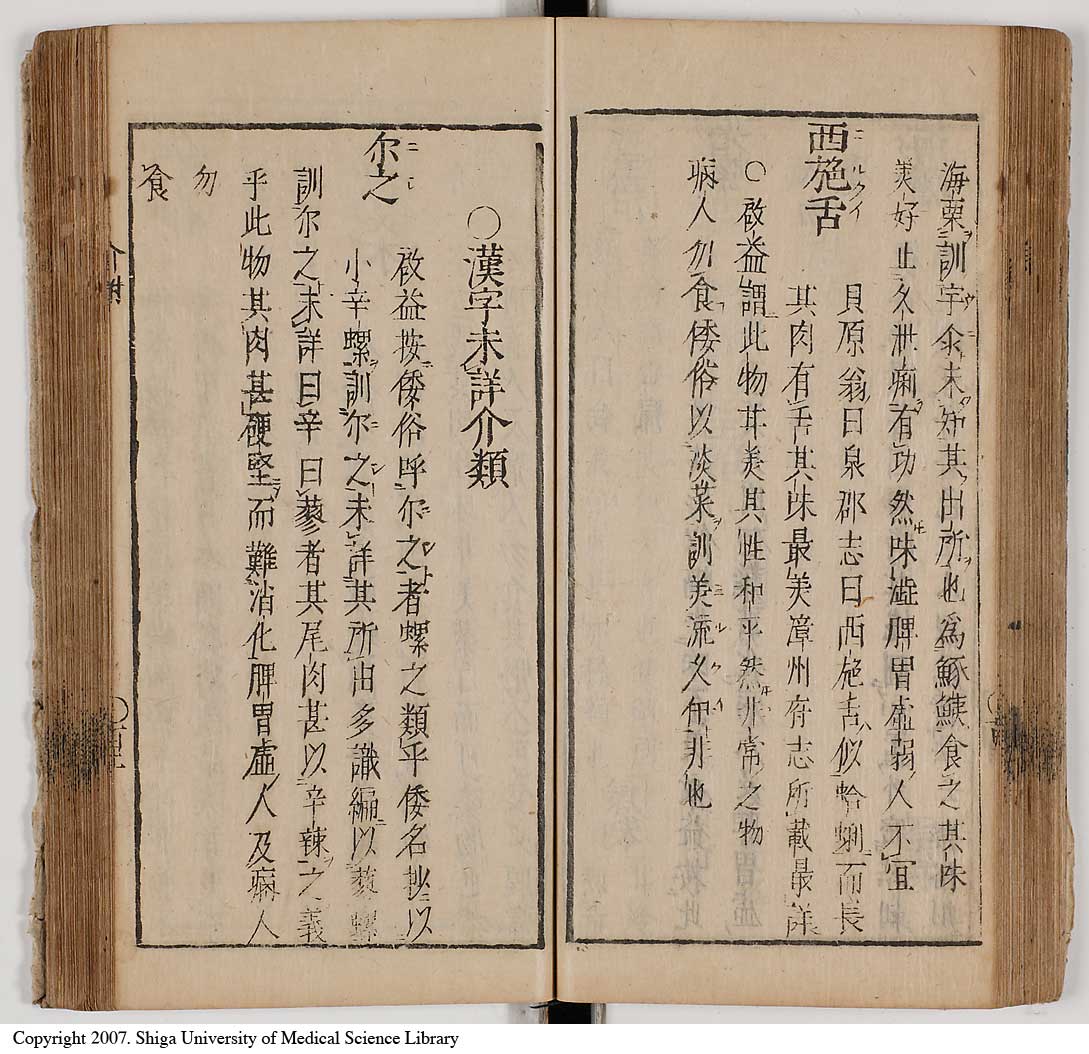 海栗訓宇仝未知其出所也為䱄䱀食之其味
美好止久泄痢有功然味澁脾胃虛弱人不宜
西施舌
貝原翁曰泉郡志曰西施舌似蛤蜊而長
其肉有舌其味最美漳州府志所載最詳
○啟益謂此物其美其性和平然非常之物
病人勿食倭俗以淡菜訓美流久伊非也
○漢字未詳介類
尓之
啟益按倭俗呼尓之者螺之類乎倭名抄以
小辛螺訓尓之未詳其所由多識編以蓼螺
訓尓之未詳曰辛曰蓼者其尾肉甚以辛辣之義
乎此物其肉甚硬堅而難消化脾胃虛人及病人
勿
食
Copyright 2007. Shiga University of Medical Science Library